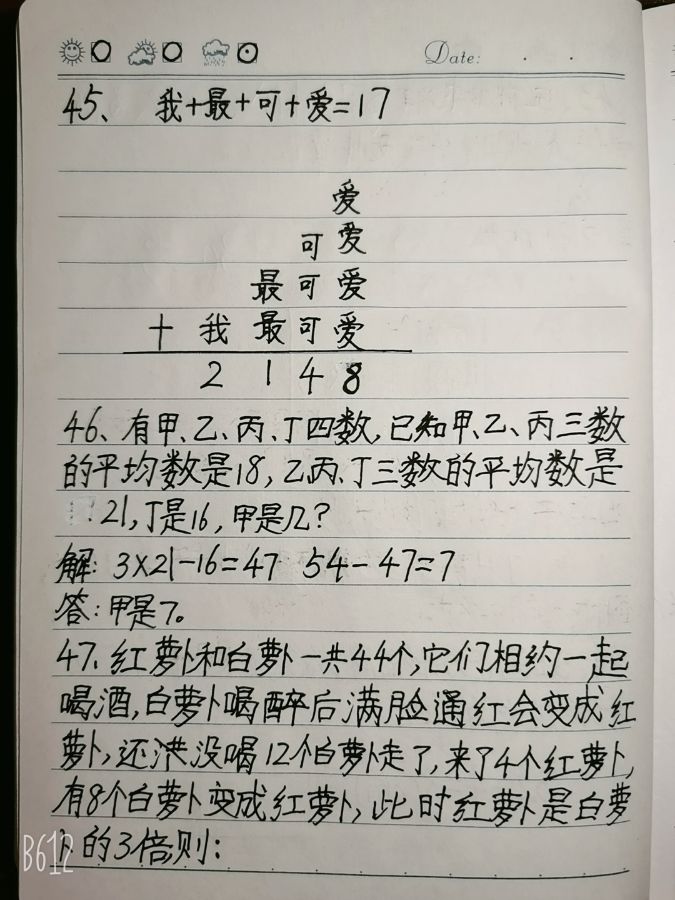 Date:
45、 我+最+可+爱=17
爱
可爱
最可爱
+ 我最可爱
2148
46、有甲、乙、丙、丁四数,已知甲、乙、丙三数
的平均数是18,乙丙、丁三数的平均数是
21,丁是16,甲是几?
解: 3×21-16=47 54-47=7
答:甲是7。
47、红萝卜和白萝卜一共44个,它们相约一起
喝酒,白萝卜喝醉后满脸通红会变成红
萝卜,还没喝12个白萝卜走了,来了4个红萝卜,
有8个白萝卜变成红萝卜,此时红萝卜是白萝
卜的3倍则:
B612